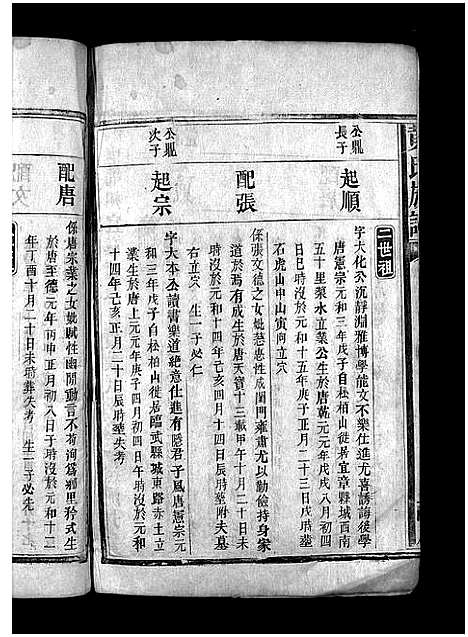 黃氏族譜
二世祖
公鼎長子
起順
字大化公沉靜淵雅博學能文不樂仕進尤喜誘誨後學
唐憲宗元和三年戊子自松柏山徙居宜章縣城西南
五十里栗水立業公生於唐乾元元年戊戌八月初四
日巳時沒於元和十五年庚子正月二十三日戌時塟
石虎山申山寅向立穴
配張
係張文德之女妣慈惠性成閨門雍肅尤以勤儉持身家
道於焉有成生於唐天寶十三載甲午十月二十日未
時沒於元和十四年己亥四月十四日辰時塟附夫墓
右立穴 生一子必仁
公鼎次子
起宗
字大本公讀書樂道絶意仕進有隱君子風唐憲宗元
和三年戊子自松柏山徙居臨武縣城東路赤土立
業生於唐上元元年庚子四月初四日午時沒於元和
十四年己亥正月二十日辰時塟失考
配唐
係唐宗業之女妣賦性幽閒動言不苟洵爲鄉里矜式生
唐至德元年丙申正月初八日子時沒於元和十二
年丁酉十月二十日未時葬失考 生二子必先